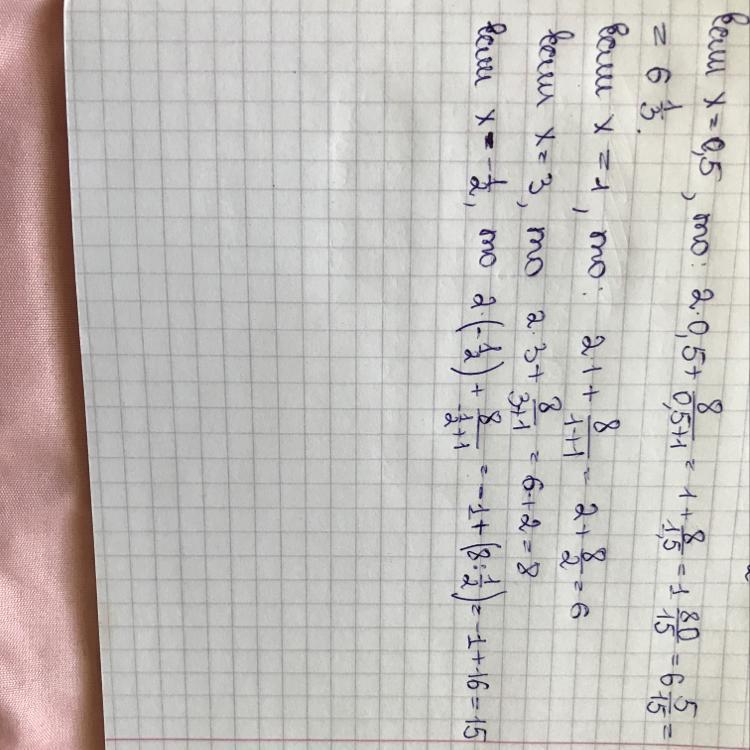 если x = 0,5, то: 2·0,5 + 8/(0,5+1) = 1 + 8/1,5 = 1 80/15 = 6 5/15 =
= 6 1/3.
если x = 1, то: 2·1 + 8/(1+1) = 2 + 8/2 = 6
если x = 3, то 2·3 + 8/(3+1) = 6+2 = 8
если x = -1/2, то 2·(-1/2) + 8/(-1/2+1) = -1 + (8:1/2) = -1+16 = 15